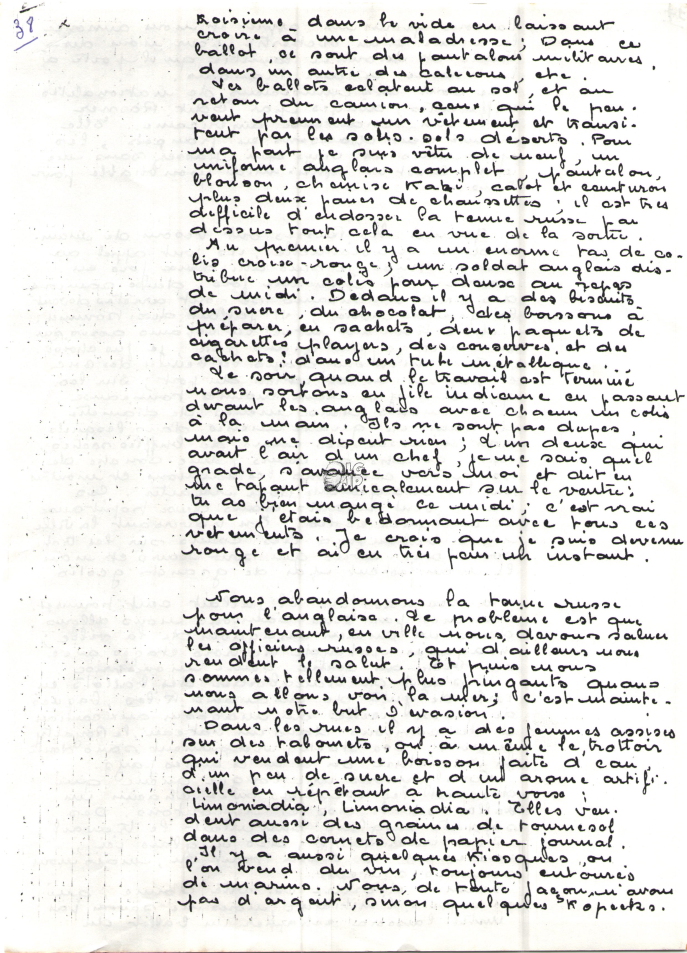 38 x
troisième dans le vide en laissant
croire à une maladresse; Dans ce
ballot, ce sont des pantalons militaires,
dans un autre, des calecons, etc.
Les ballots eclatent au sol, et au
retour du camion, ceux qui le peu-
vent prennent un vêtement et transi-
tent par les sous-sols déserts. Pour
ma part je suis vêtu de neuf, un
uniforme anglais complet, pantalon,
blouson, chemise Kaki, calot et ceinturon
plus deux paires de chaussettes; il est très
difficile d'endosser la tenue russe par
dessus tout cela en vue de la sortie.
Au premier il y a un enorme tas de co-
lis croix-rouge; un soldat anglais dis-
tribue un colis pour deux au repas
de midi. Dedans il y a des biscuits
du sucre, du chocolat, des boissons à
préparer, en sachets, deux paquets de
cigarettes players, des conserves et des
cachets! dans un tube métallique...
Le soir, quand le travail est terminé
nous sortons en file indienne en passant
devant les anglais avec chacun un colis
à la main. Ils ne sont pas dupes,
mais ne disent rien; l'un deux qui
avait l'air d'un chef, je ne sais quel
grade, s'avance vers moi et dit en
me tapant amicalement sur le ventre:
tu as bien mangé ce midi; c'est vrai
que j'étais bedonnant avec tous ces
vetements. Je crois que je suis devenu
rouge et ai eu très peur un instant.
Nous abandonnons la tenue russe
pour l'anglaise. Le problème est que
maintenant, en ville nous devons saluer
les officiers russes, qui d'ailleurs nous
rendent le salut. Et puis nous
sommes tellement plus fringants quand
nous allons voir la mer; c'est mainte-
nant notre but d'évasion.
Dans les rues il y a des femmes assises
sur des tabourets, ou à même le trottoir
qui vendent une boisson faite d'eau,
d'un peu de sucre et d'un arome artifi-
cielle en répétant à haute voix:
Limoniadia, Limoniadia. Elles ven-
dent aussi des graines de tournesol
dans des cornets de papier journal.
Il y a aussi quelques Kiosques, ou
l'on vend du vin, toujours entourés
de marins. Nous, de toute façon, n'avons
pas d'argent, sinon quelques Kopecks.